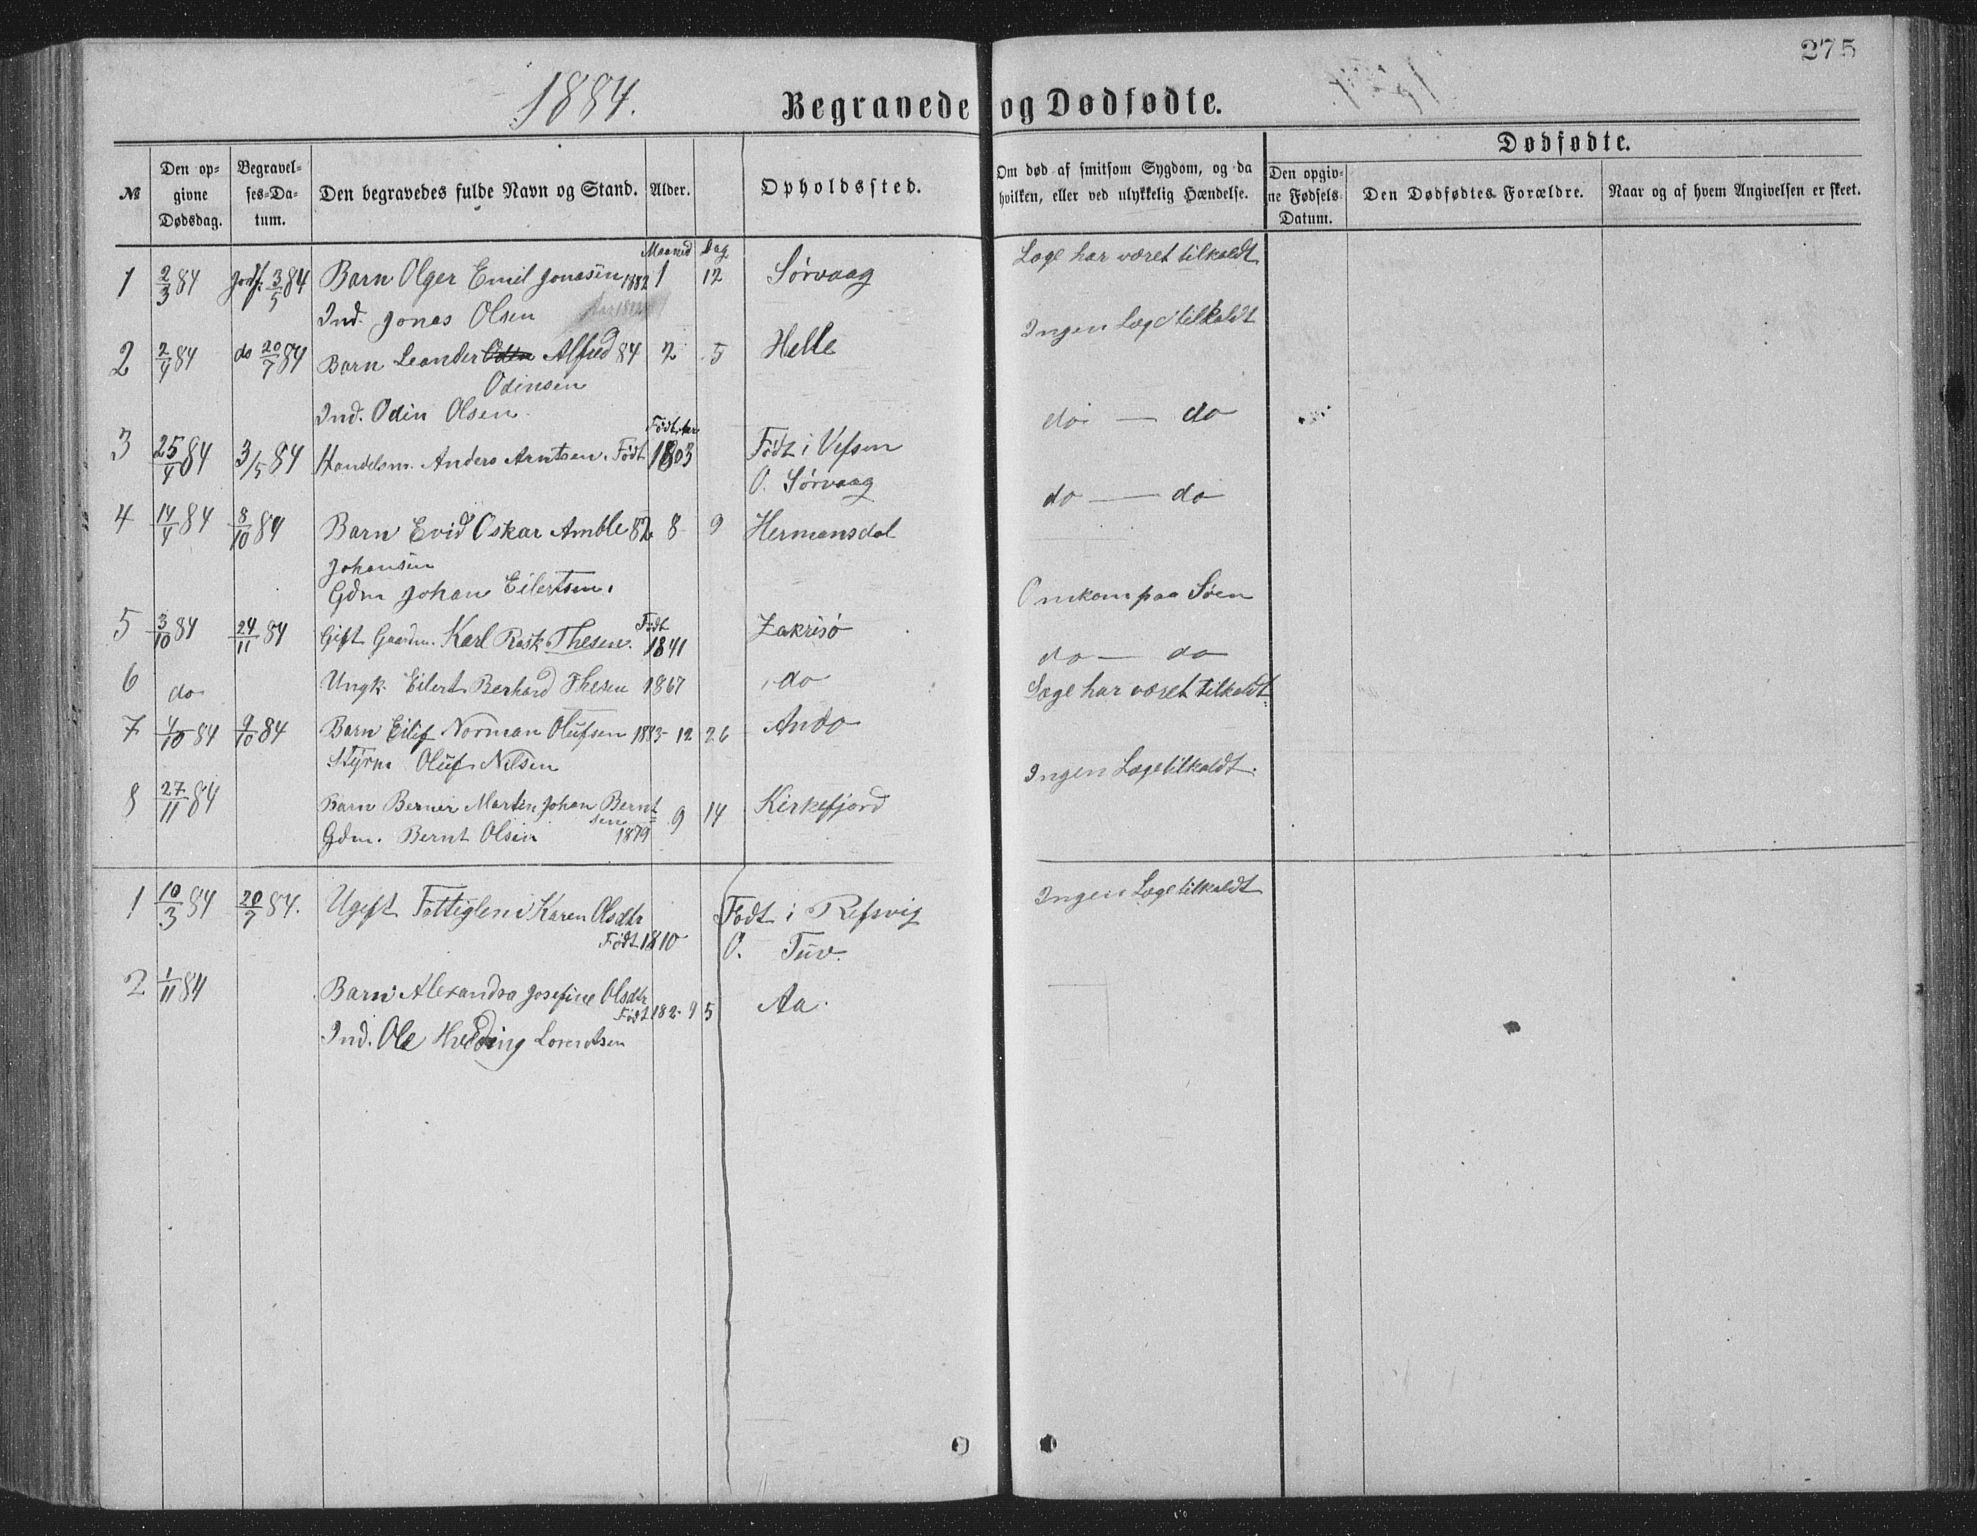 275
1884.
Begravede og Dødfødte.
Dødfødte.
№
Den opgivne Dødsdag.
Begravelses-Datum.
Den begravedes fulde Navn og Stand.
Alder.
Opholdssted.
Om død af smitsom Sygdom, og da hvilken, eller ved ulykkelig Hændelse.
Den opgivne Fødsels-Datum.
Den Dødfødtes Forældre.
Naar og af hvem Angivelsen er skeet.
Maaned Dag
1 2/3 84 Jordf. 3/5 84 Barn Olger Emil Jonasen 1882 1 12 Sørvaag Læge har været tilkaldt
Ind. Jonas Olsen
2 2/4 84 do 20/7 84 Barn Leander Alfred 84 2 5 Helle Ingen Læge tilkaldt
Odinsen
Ind. Odin Olsen
3 25/4 84 3/5 84 Handelsm. Anders Arntsen. Født 1803 Født i Vefsen do — do
O. Sørvaag
4 14/4 84 8/10 84 Barn Evid Oskar Amble 82 8 9 Hermansdal do — do
Johansen
Gdm Johan Eilertsen.
5 3/10 84 24/11 84 Gift Gaardm. Karl Rask Thesen. Født 1841 Zakrisø Omkom paa Søen
6 do Ungk. Eilert Berhard Thesen 1867 do do — do
7 4/10 84 9/10 84 Barn Eilif Norman Olufsen 1883 12 26 Ando Læge har været tilkaldt
Styrm Oluf Nilsen
8 27/11 84 Barn Berner Marten Johan Berntsen 9 14 Kirkefjord Ingen Læge tilkaldt.
Gdm. Bernt Olsen 1879
1 10/3 84 20/7 84. Ugift Fattiglem Karen Olsdtr Født i Refsvig Ingen Læge tilkaldt
Født 1810 O. Tuv.
2 1/11 84 Barn Alexandra Josefine Olsdtr
Født 182 9 5 Aa.
Ind. Ole Hvedding Lorentsen